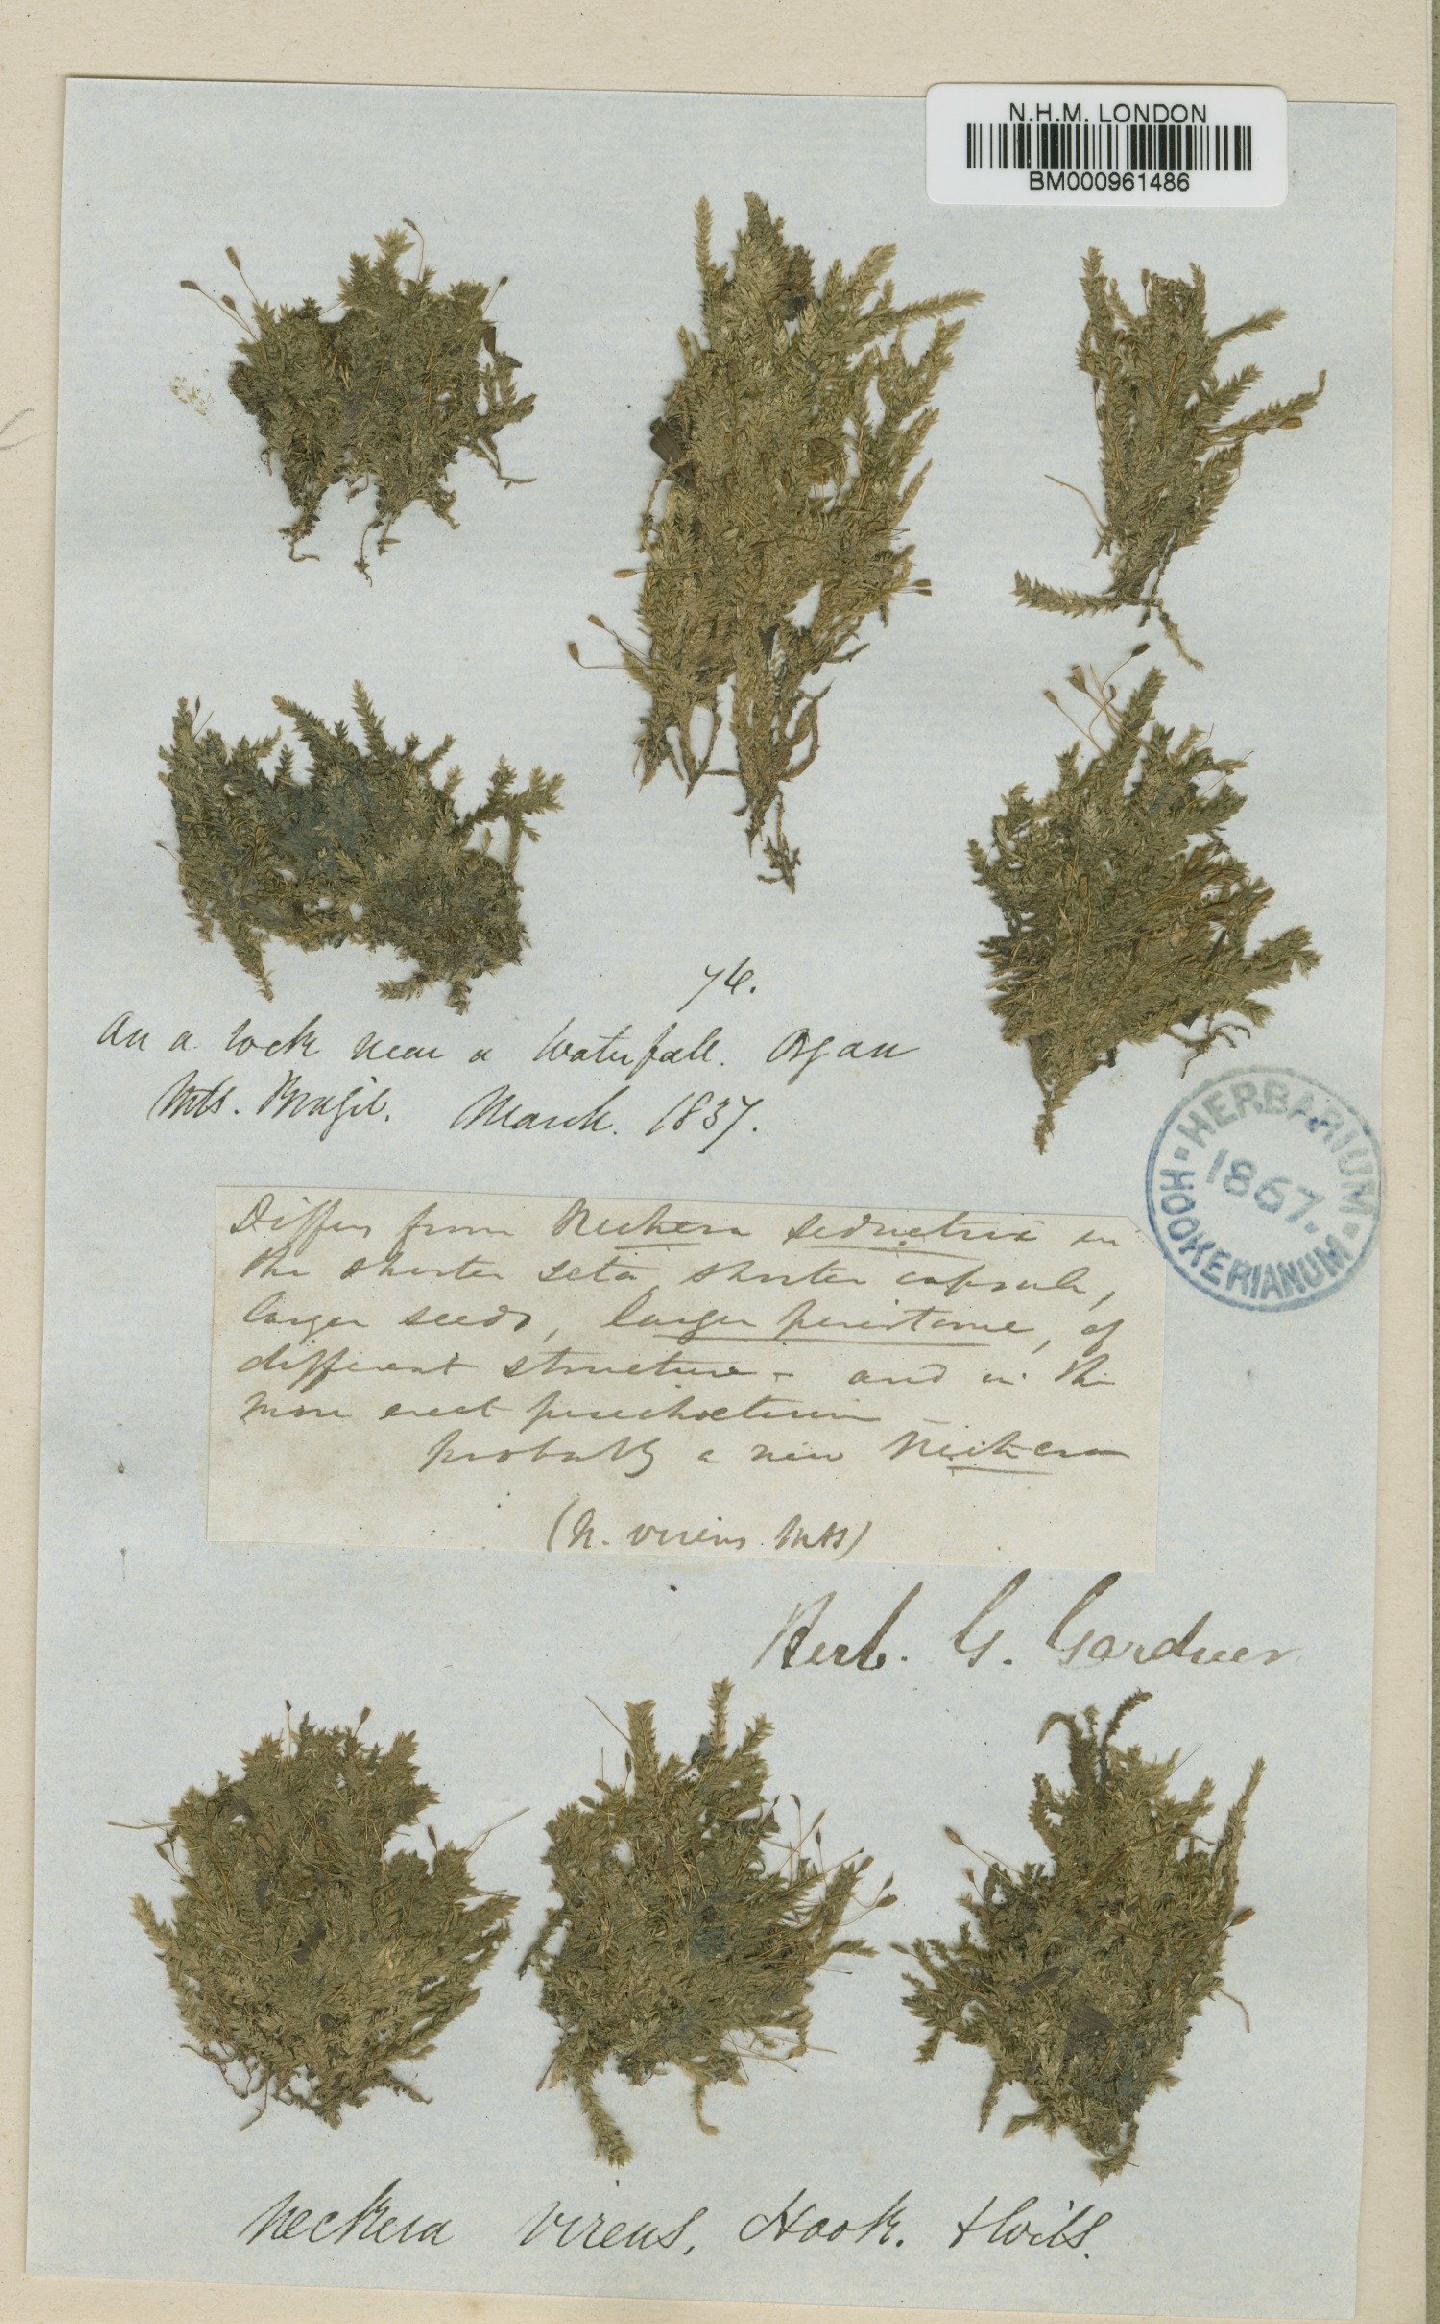 N.H.M. LONDON
BM000961486
74.
On a rock near a Waterfall. Organ
Mts. Brazil. March. 1837.
HERBARIUM
1867.
HOOKERIANUM
Differs from Neckera seductrix in
the shorter seta, shorter capsule,
larger seeds, larger peristome, of
different structure - and in the
more erect perichaetium
probably a new Neckera
(N. virens Mss)
Herb. G. Gardner
Neckera virens, Hook. & Wils.